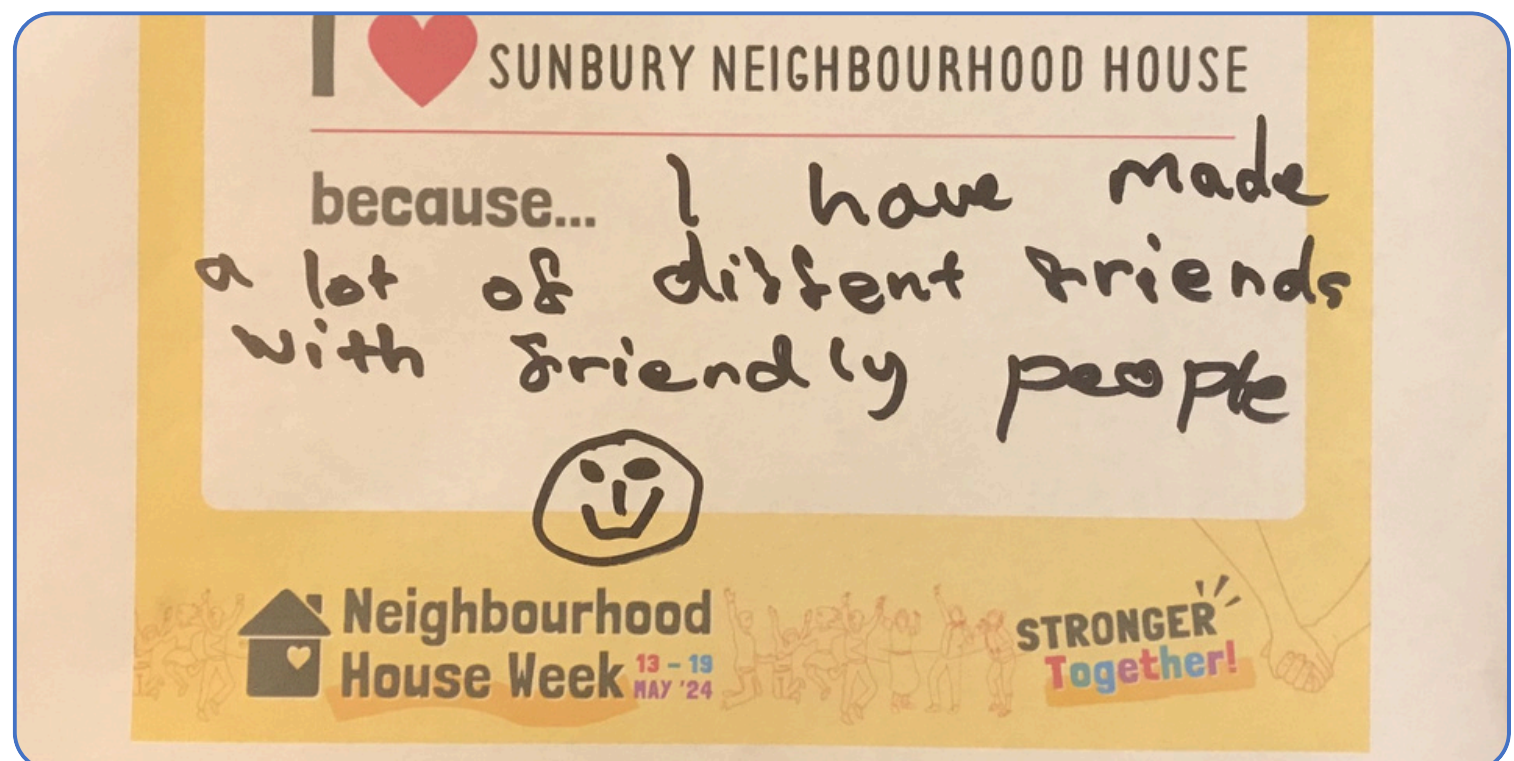 I ❤ SUNBURY NEIGHBOURHOOD HOUSE
because... I have made
a lot of diffent friends
with friendly people
Neighbourhood
House Week 13 – 19
MAY '24
STRONGER
Together!